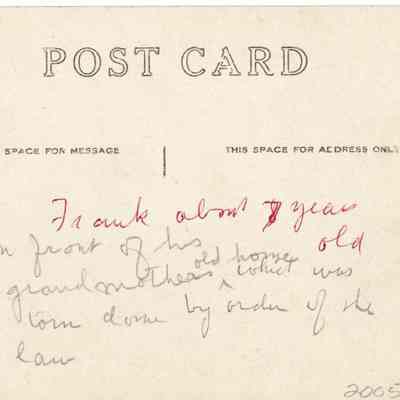 POST CARD
SPACE FOR MESSAGE
THIS SPACE FOR ADDRESS ONLY
Frank about 7 years
old
n front of his
old home
grandmothers which was
torn down by order of the
law
2005